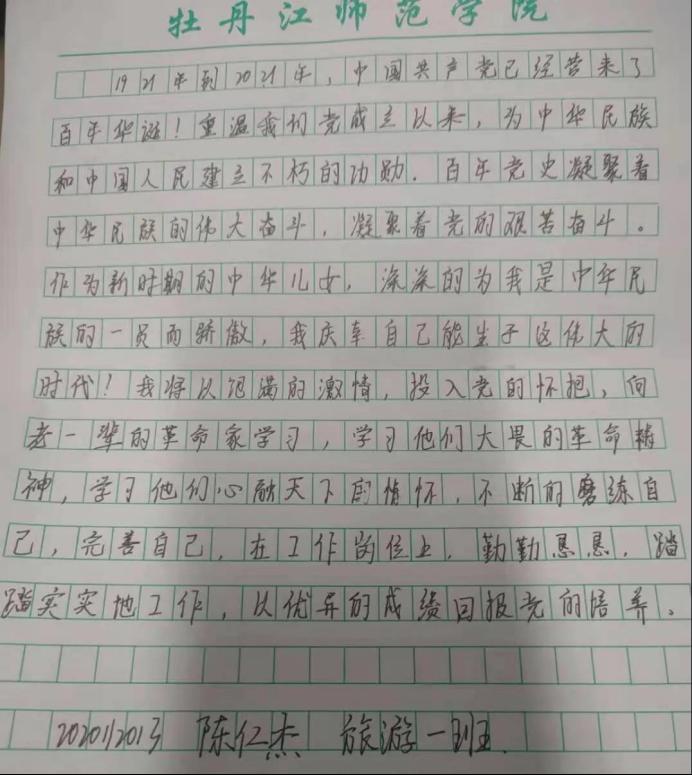 牡丹江师范学院
1921年到2021年，中国共产党已经营来了
百年华诞！重温我们党成立以来，为中华民族
和中国人民建立不朽的功勋．百年党史凝聚着
中华民族的伟大奋斗，凝聚着党的艰苦奋斗。
作为新时期的中华儿女，深深的为我是中华民
族的一员而骄傲，我庆幸自己能生于这伟大的
时代！我将以饱满的激情，投入党的怀抱，向
老一辈的革命家学习，学习他们大畏的革命精
神，学习他们心融天下的情怀．不断的磨练自
己，完善自己．在工作岗位上．勤勤恳恳．踏
踏实实地工作，以优异的成绩回报党的培养。
陈仁杰 旅游一班．